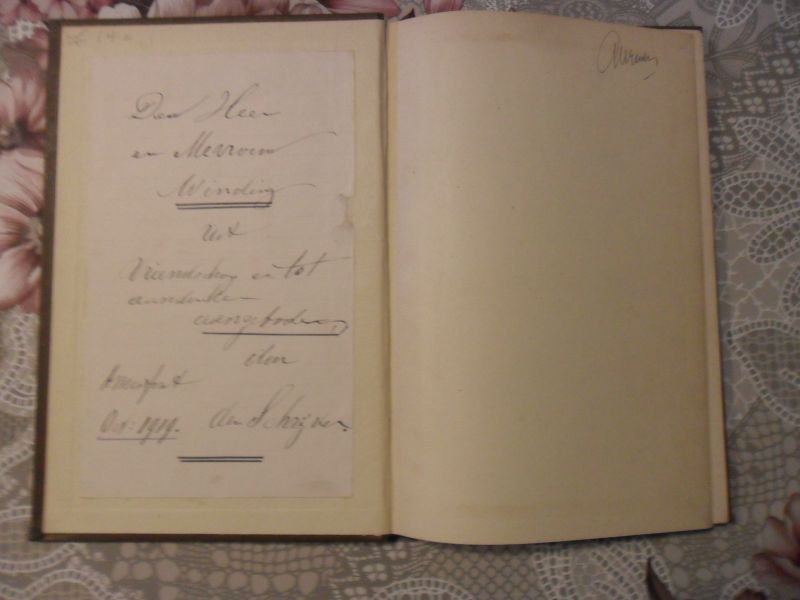 Den Heer
en Mevrouw
Winding
uit
Vriendschap en tot
aandenken
aangeboden,
den
Amersfoort
Oct: 1919. den Schrijver.